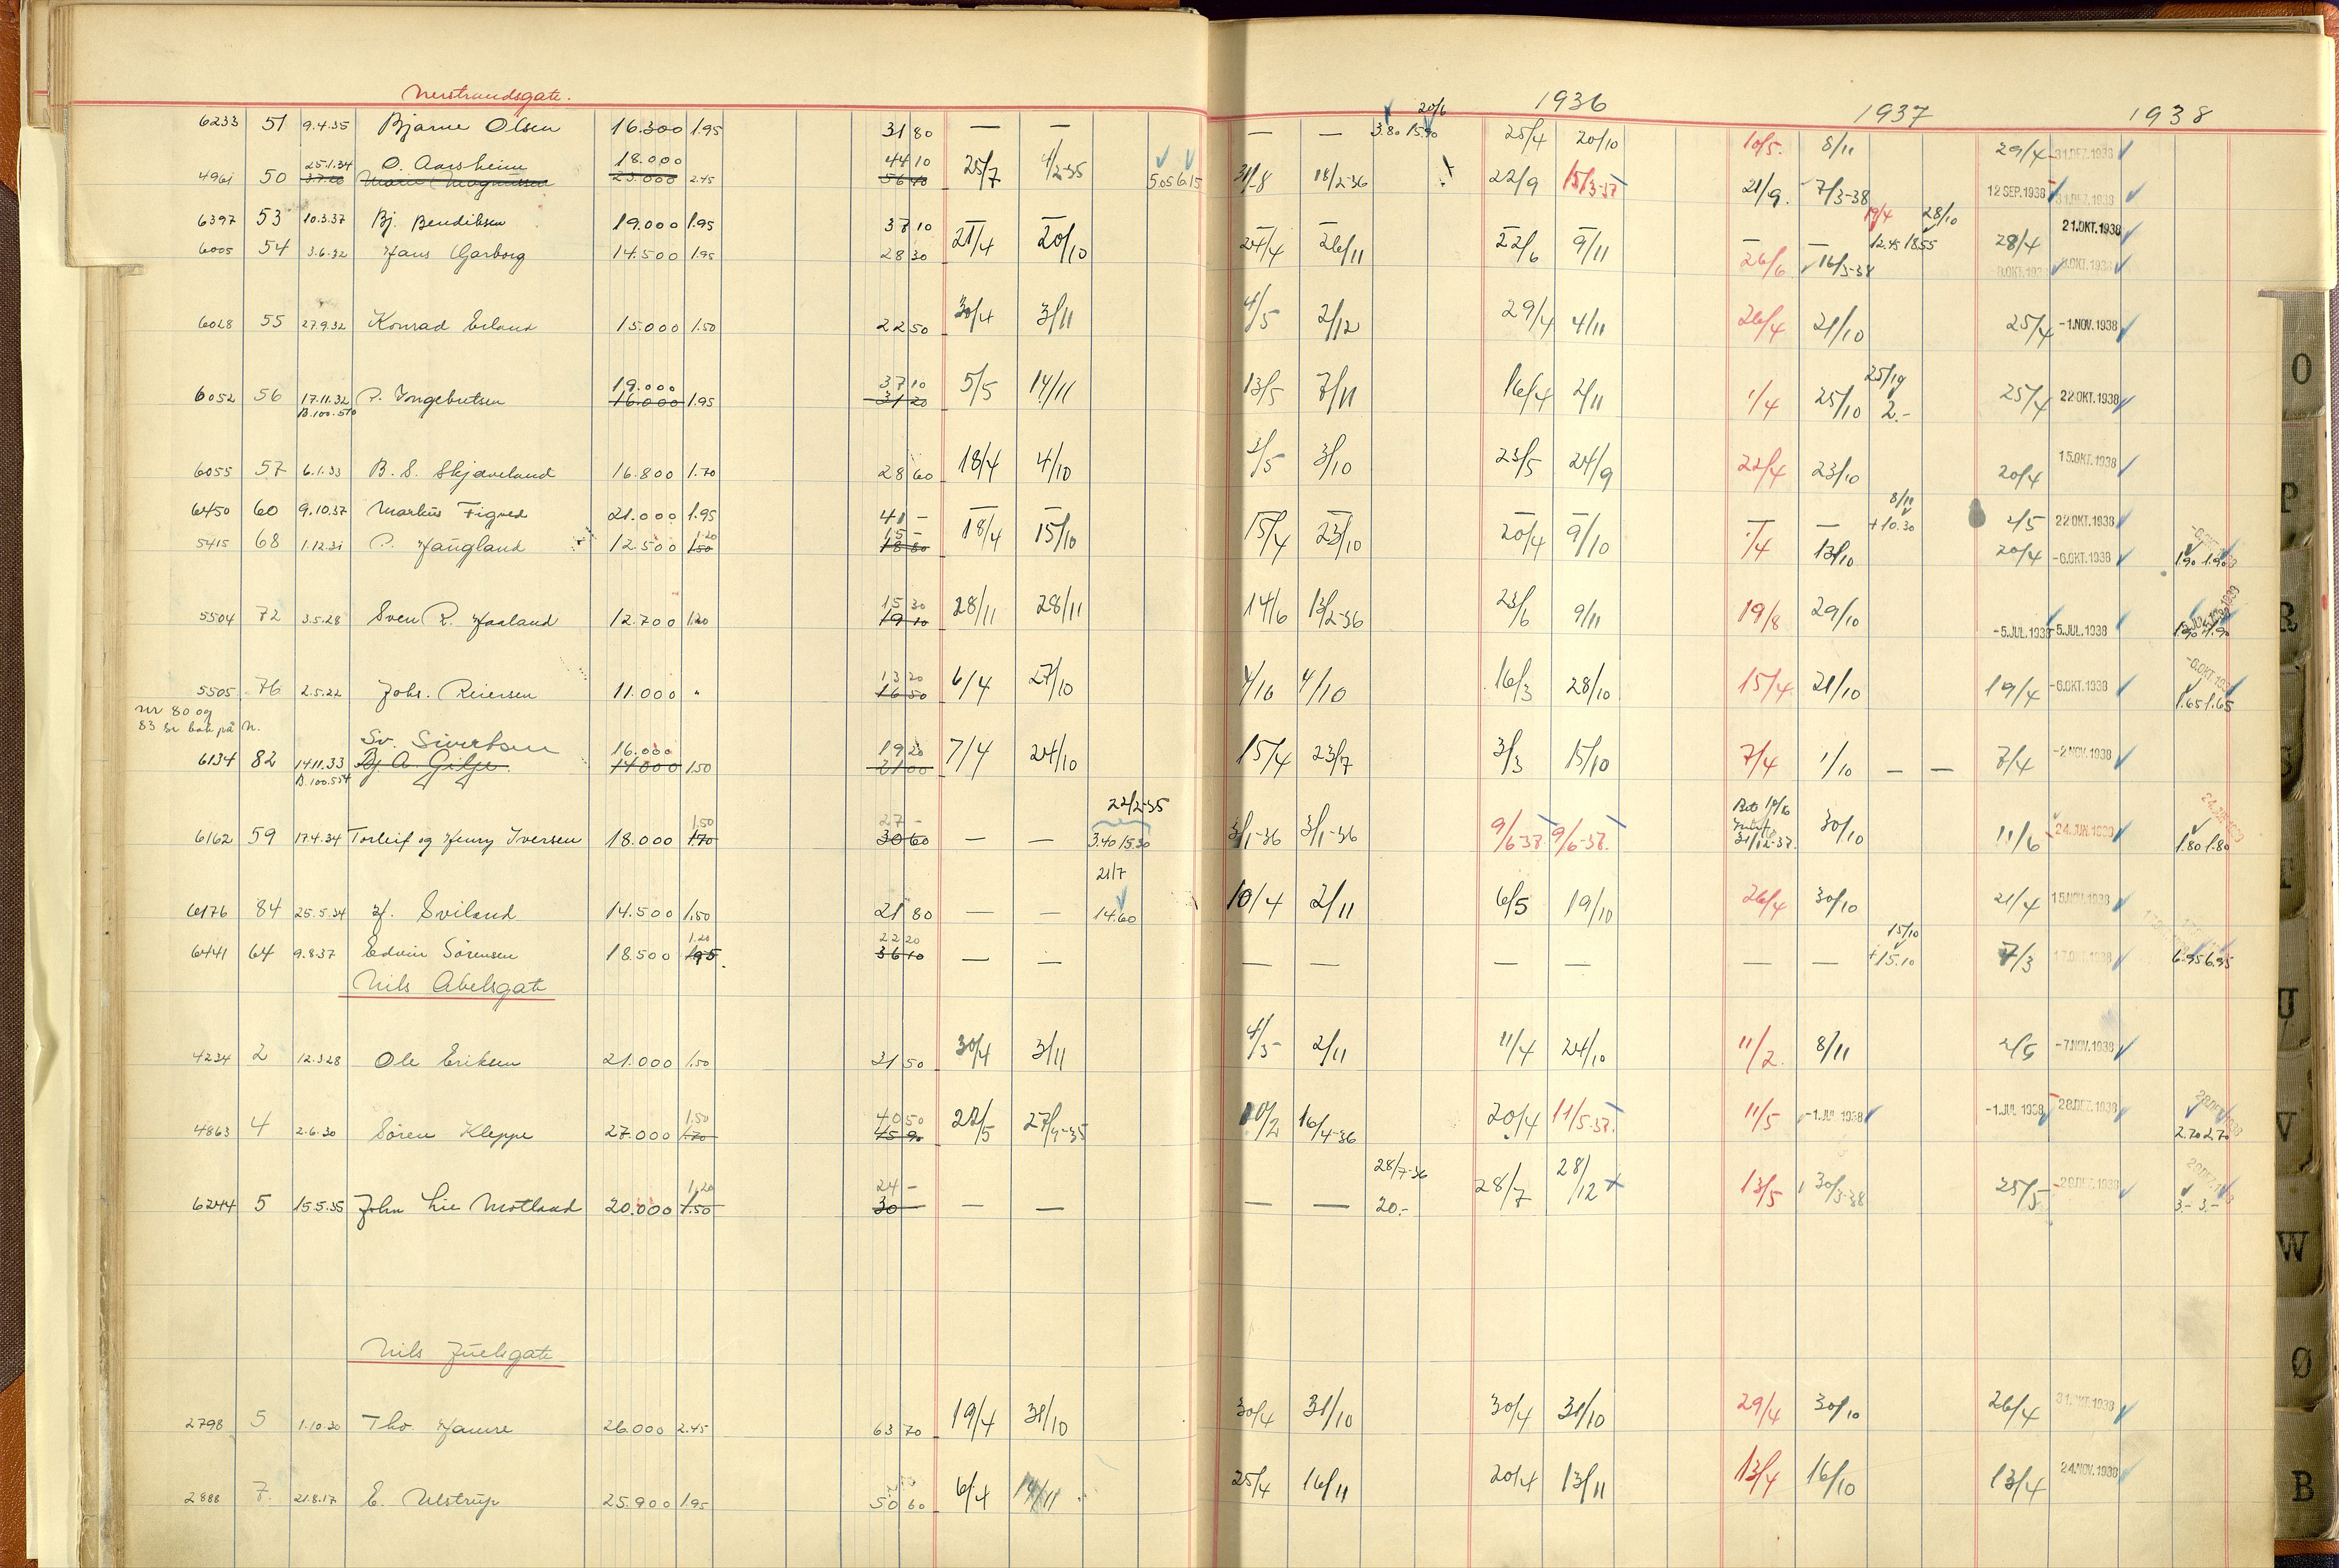 Nerstrandsgate.
20/6 1936 1937 1938
6233 51 9.4.35 Bjarne Olsen 16.300 1.95 31 80 — — — — 3.80 15.90 25/4 20/10 10/5. 8/11 29/4 31.DEZ.1938
25.1.34 O. Aarsheim 18.000 44 10
4961 50 3.7.20 Marie Magnussen 23.000 2.45 56 40 25/7 4/2-35 5.05 6.15 31/-8 18/2-36 22/9 15/3-37 21/9. 7/3-38 12 SEP.1938 31.DEZ.1938
19/4 28/10
6397 53 10.3.37 Bj. Bendiksen 19.000 1.95 37 10 — — — — — — — — 12.45 18.55 28/4 21.OKT.1938
6005 54 3.6.32 Hans Garborg 14.500 1.95 28 30 21/4 20/10 24/4 26/11 22/6 9/11 26/6 16/3-38 8.OKT.1938 8.OKT.1938
6028 55 27.9.32 Konrad Erland 15.000 1.50 22 50 30/4 3/11 4/5 2/12 29/4 4/11 26/4 21/10 25/4 -1.NOV.1938
19.000 37 10 25/10
6052 56 17.11.32 P. Ingebretsen 16.000 1.95 31 20 5/5 14/11 13/5 7/11 16/4 2/11 1/4 25/10 2.- 25/4 22 OKT.1938
B.100.510
6055 57 6.1.33 B. S. Skjæveland 16.800 1.70 28 60 18/4 4/10 3/5 3/10 23/5 24/9 22/4 23/10 20/4 15.OKT.1938
8/11
6450 60 9.10.37 Markus Figved 21.000 1.95 41 - — — — — — — — — +10.30 2/5 22 OKT.1938
1.20 15 -
5415 68 1.12.31 P. Haugland 12.500 1.50 18 80 18/4 15/10 15/4 23/10 20/4 9/10 1/4 13/10 20/4 -6.OKT.1938 1.90 1.90
15 30
5504 72 3.5.28 Sven R. Haaland 12.700 1.20 19 10 28/11 28/11 14/6 13/2-36 23/6 9/11 19/8 29/10 -5.JUL.1938 -5.JUL.1938 1.90 1.90
13 20
5505 76 2.5.22 Johs. Reiersen 11.000 " 16 50 6/4 27/10 4/10 4/10 16/3 28/10 15/4 21/10 19/4 -6.OKT.1938 1.65 1.65
nr 80 og
83 se bak på N.
Sv. Sivertsen 16.000 19 20
6134 82 14.11.33 Bj. A. Gilje 14000 1.50 21 00 7/4 24/10 15/4 23/7 3/3 15/10 7/4 1/10 — — 7/4 -2 NOV.1938
B.100.554
22/2-35
1.50 27 -
6162 59 17.4.34 Torleif og Henry Iversen 18.000 1.70 30 60 — — 3.40 15.30 3/1-36 3/1-36 9/6-37. 9/6-37. 31/12-37. 30/10 11/6 24 JUN.1939 1.80 1.80
21/7
6176 84 25.5.34 H. Sviland 14.500 1.50 21 80 — — 14.60 10/4 2/11 6/5 19/10 26/4 30/10 21/4 15.NOV.1938
1.20 22 20 15/10
6441 64 9.8.37 Edvin Sörensen 18.500 1.95 36 10 — — — — — — — — +15.10 7/3 17.OKT.1938 6.95 6.95
Nils Abelsgate
4234 2 12.3.28 Ole Eriksen 21.000 1.50 31 50 30/4 3/11 4/5 2/11 11/4 24/10 11/2. 8/11 2/5 -7.NOV.1938
1.50 40 50
4863 4 2.6.30 Sören Kleppe 27.000 1.70 45 90 22/5 27/4-35 10/2 16/4-36 20/4 11/5-37. 11/5 -1.JUL 1938 -1.JUL 1938 28.DEZ.1938 2.70 2.70
28/7-36
1.20 24 -
6244 5 15.5.35 John Lie Motland 20.000 1.50 30 — — — — — 20.- 28/7 28/12 13/5 30/3-38 25/5 28.DEZ.1938 3.- 3.-
Nils Juelsgate
2798 5 1.10.30 Tho. Hamre 26.000 2.45 63 70 19/4 31/10 30/4 31/10 30/4 31/10 29/4 30/10 26/4 31.OKT.1938
2888 7. 21.8.17 E. Ulstrup 25.900 1.95 50 60 6/4 14/11 25/4 16/11 20/4 13/11 13/4 16/10 13/4 24.NOV.1938
O
P
R
S
T
U
V
W
Ø
B